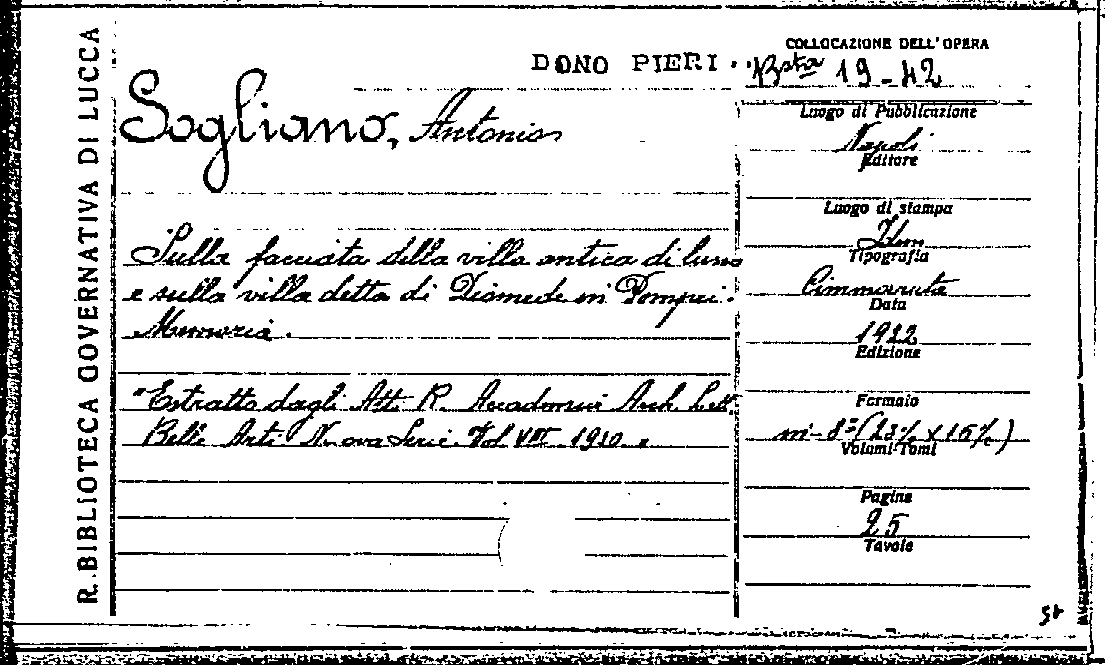 R. BIBLIOTECA GOVERNATIVA DI LUCCA
DONO PIERI
Sogliano, Antonio
Sulla facciata della villa antica di lusso
e sulla villa detta di Diomede in Pompei.
Memoria.
"Estratto dagli Atti R. Accademia Arch. Lett.
Belle Arti Nuova Serie Vol VIII 1920"
COLLOCAZIONE DELL'OPERA
Bsta 19-42
Luogo di Pubblicazione
Napoli
Editore
Luogo di stampa
Idem
Tipografia
Cimmaruta
Data
1922
Edizione
Formato
in-8º (23½ x 16½)
Volumi-Tomi
Pagine
25
Tavole